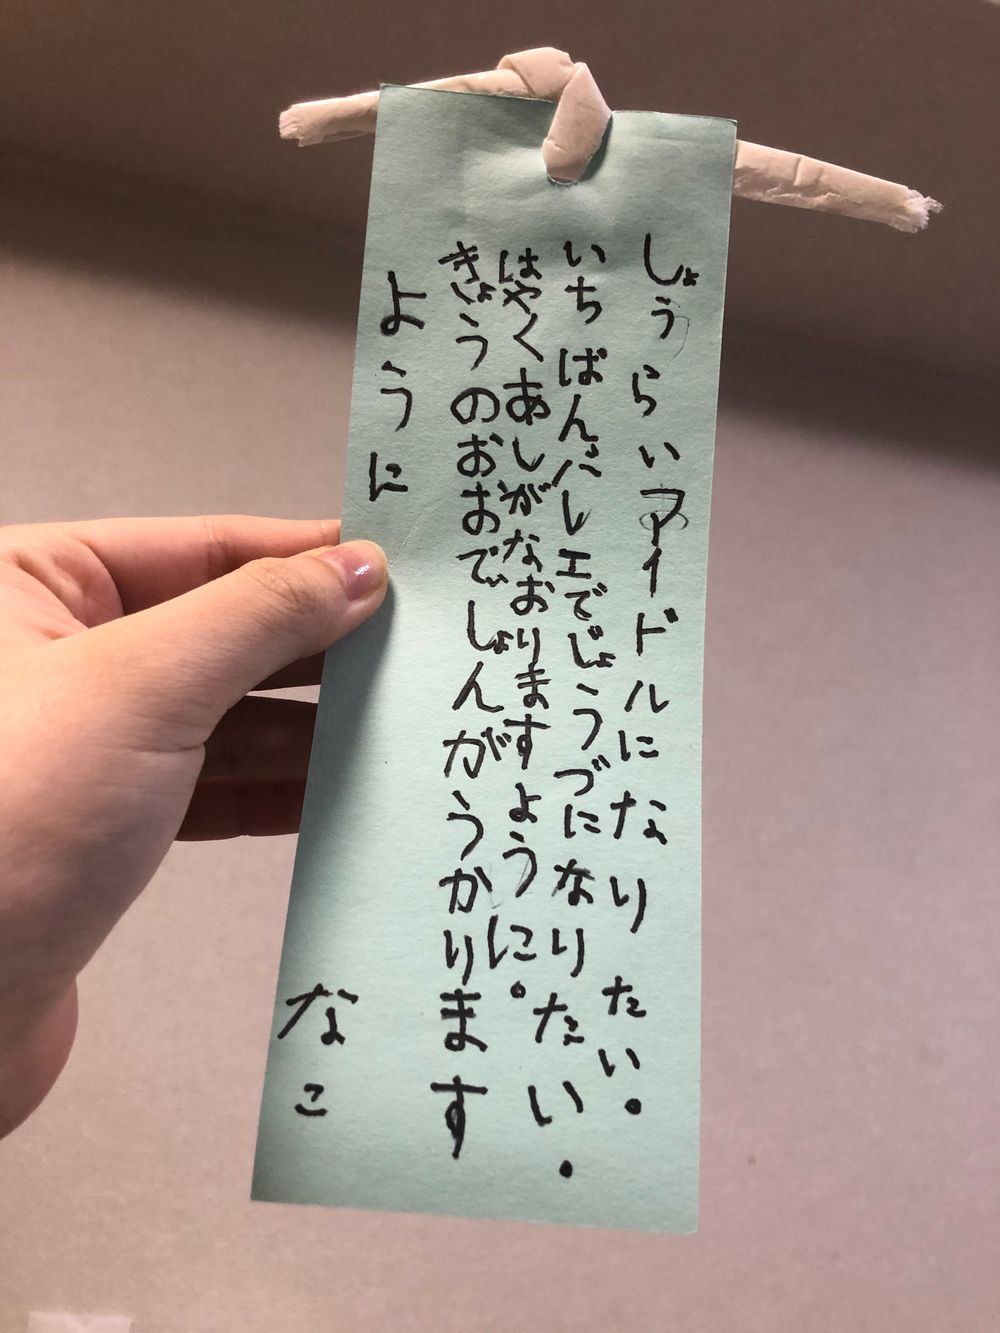 しょうらいアイドルになりたい。
いちばんバレエでじょうづになりたい。
はやくあしがなおりますように。
きょうのおおでぃしょんがうかります
ように
なこ